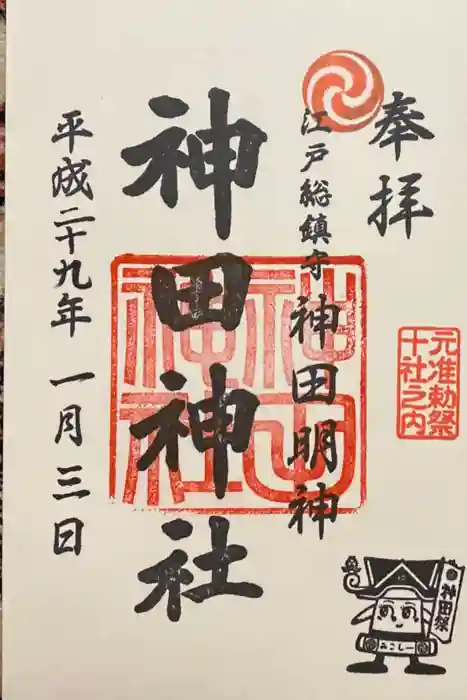 奉拝
江戸総鎮守 神田明神
神田神社
平成二十九年 一月三日
元准勅祭
十社之内
神田
神社
神田祭
みこしー